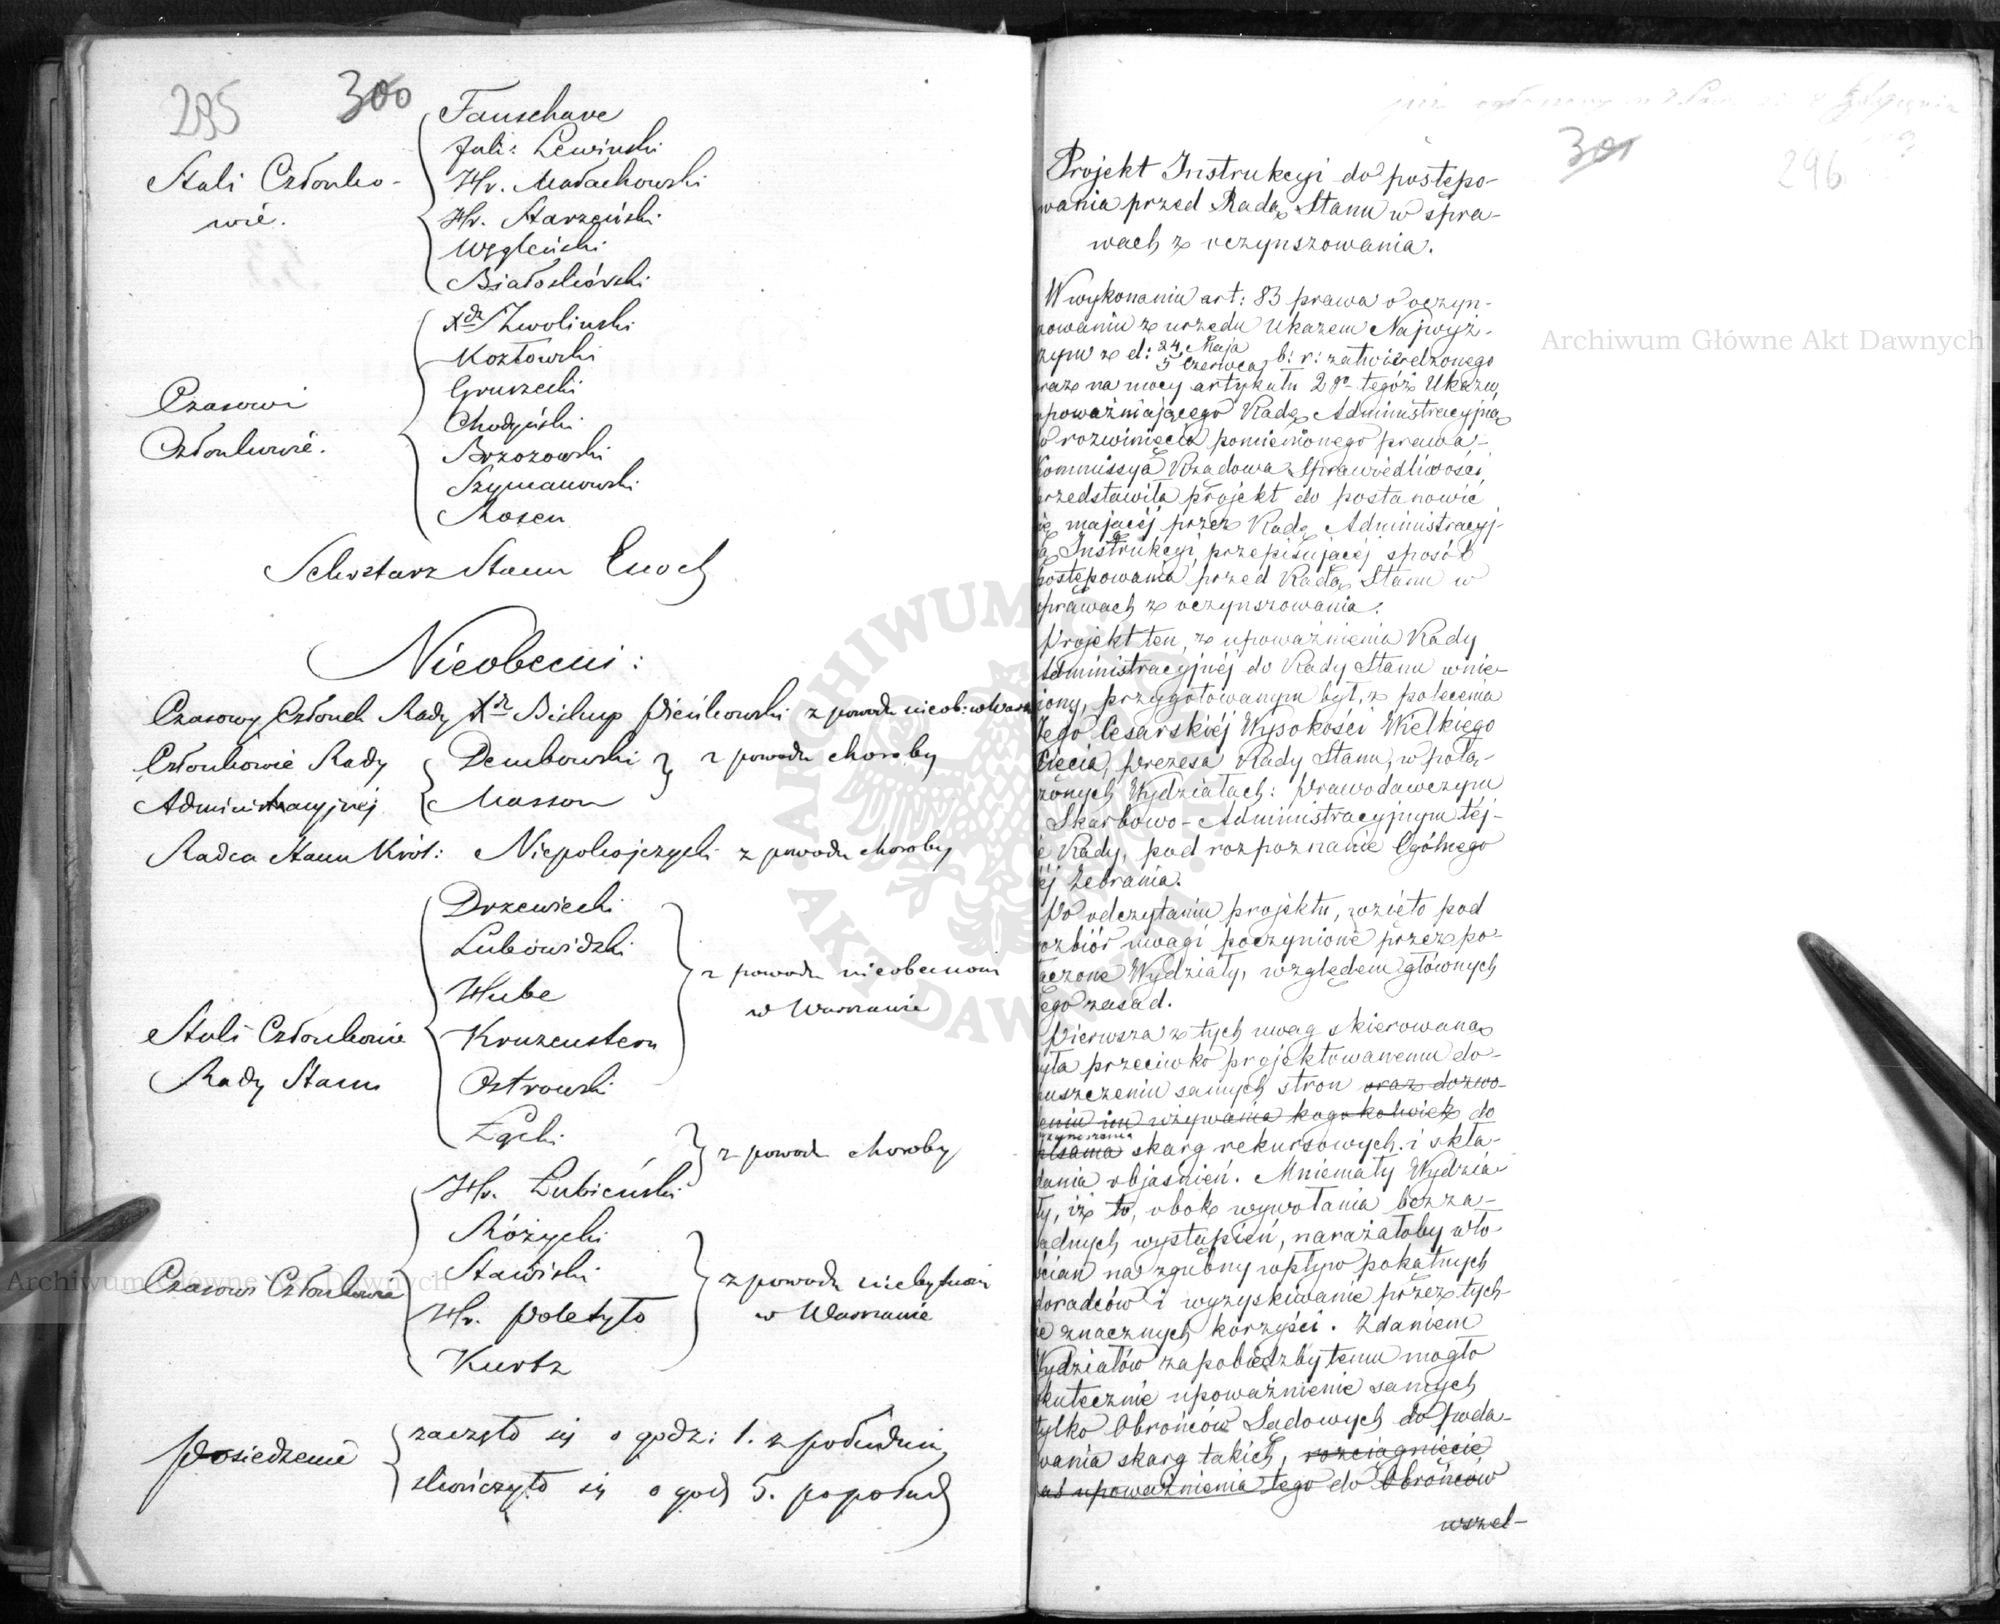 295 300
Stali Członko-
wie.
Fanschave
Juli: Lewiński
Hr. Małachowski
Hr. Starzyński
Węgleński
Białoskórski
Czasowi
Członkowie.
Xdz Zwoliński
Kozłowski
Gruszecki
Chodyński
Brzozowski
Szymanowski
Rosen
Sekretarz Stanu Enoch
Nieobecni:
Czasowy Członek Rady Xdz Biskup Pieńkowski z powodu nieob: w Warsz
Członkowie Rady
Administracyjnej
Dembowski
Masson
z powodu choroby
Radca Stanu Król: Niepokojczycki z powodu choroby
Stali Członkowie
Rady Stanu
Drzewiecki
Lubowidzki
Hube
Kruzenstern
Ostrowski
Łącki
z powodu nieobecności
w Warszawie
z powodu choroby
Czasowi Członkowie
Hr. Łubieński
Różycki
Stawiski
Hr. Poletyło
Kurtz
z powodu niebytności
w Warszawie
Posiedzenie
zaczęło się o godz: 1. z południa,
skończyło się o godz 5. popołud
301
296
Projekt Instrukcyi do postępo-
wania przed Radą Stanu w spra-
wach z oczynszowania.
W wykonaniu art: 83 prawa o oczyn-
szowaniu z urzędu Ukazem Najwyż-
szym z d: 24 Maja
5 Czerwca b: r: zatwierdzonego
oraz na mocy artykułu 2go tegoż Ukazu,
upoważniającego Radę Administracyjną
do rozwinięcia pomienionego prawa-
Kommissya Rządowa Sprawiedliwości
przedstawiła projekt do postanowić
się mającej przez Radę Administracyj-
ną Instrukcyi, przepisującej sposób
postępowania przed Radą Stanu w
sprawach z oczynszowania.
Projekt ten, z upoważnienia Rady
Administracyjnej do Rady Stanu wnie-
siony, przygotowanym był, z polecenia
Jego Cesarskiej Wysokości Wielkiego
Xięcia, Prezesa Rady Stanu, w połą-
czonych Wydziałach: Prawodawczym
i Skarbowo-Administracyjnym tej-
że Rady, pod rozpoznanie Ogólnego
jej Zebrania.
Po odczytaniu projektu, wzięto pod
rozbiór uwagi poczynione przez po-
łączone Wydziały, względem głównych
jego zasad.
Pierwsza z tych uwag skierowaną
była przeciwko projektowanemu do-
puszczeniu samych stron oraz dozwo-
leniu im używania kogokolwiek do
pisania skarg rekursowych i skła-
dania objaśnień. Mniemały Wydzia-
ły, iż to, obok wywołania bezza-
sadnych wystąpień, narażałoby wło-
ścian na zgubny wpływ pokątnych
doradców i wyzyskiwanie przez tych-
że znacznych korzyści. Zdaniem
Wydziałów zapobiedz by temu mogło
skutecznie upoważnienie samych
tylko Obrońców Sądowych do poda-
wania skarg takich, rozciągnięcie
zaś upoważnienia tego do Obrońców
wszel-
Archiwum Główne Akt Dawnych
Archiwum Główne Akt Dawnych